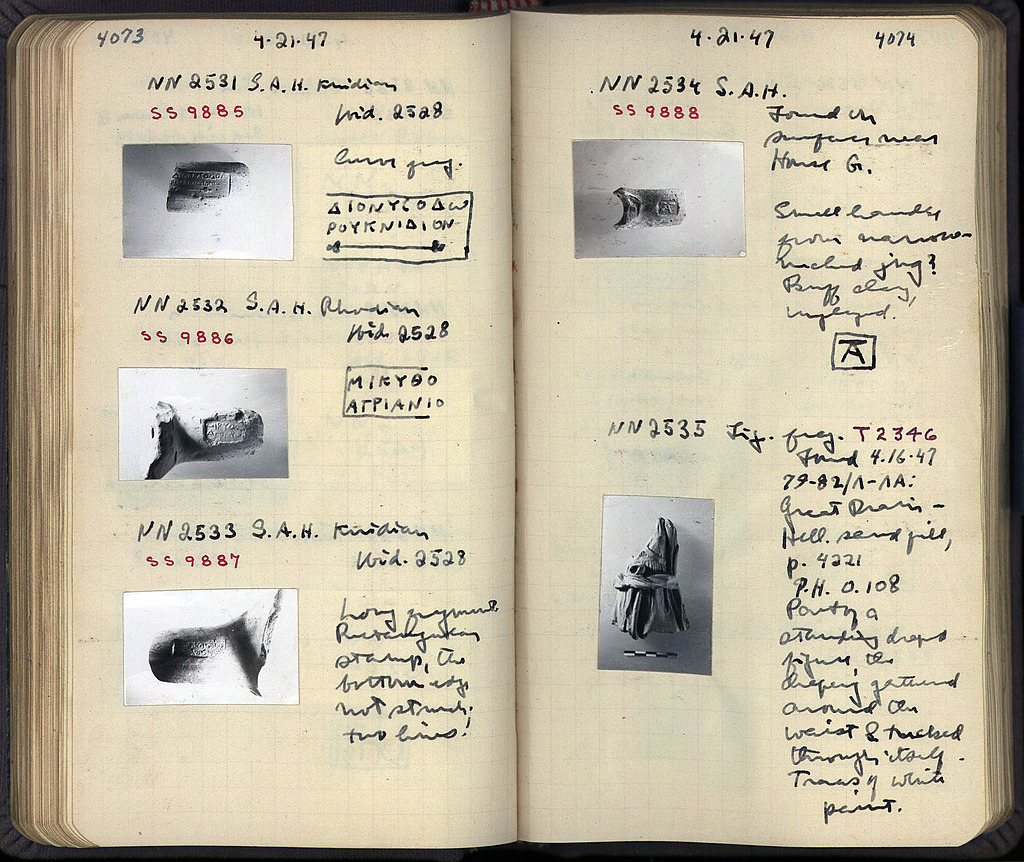 4073
4·21·47
NN 2531 S.A.H. Knidian
SS 9885
Ibid. 2528
Curve frag.
ΔΙΟΝΥΣΟΔΩ
ΡΟΥΚΝΙΔΙΟΝ
NN 2532 S.A.H. Rhodian
SS 9886
Ibid. 2528
ΜΙΚΥΘΟ
ΑΓΡΙΑΝΙΟ
NN 2533 S.A.H. Knidian
SS 9887
Ibid. 2528
Long fragment
Rectangular
stamp, the
bottom edge
not struck;
two lines!
4·21·47
4074
NN 2534 S.A.H.
SS 9888
Found on
surface near
House G.
Small handle
from narrow-
necked jug?
Buff clay,
unglazed.
A
NN 2535 Fig. frag. T 2346
Found 4.16.47
79-82/Λ-ΛΑ:
Great Drain -
Hell. sand fill,
p. 4221
P.H. 0.108
Part of a
standing draped
figure, the
drapery gathered
around the
waist & tucked
through itself.
Traces of white
paint.